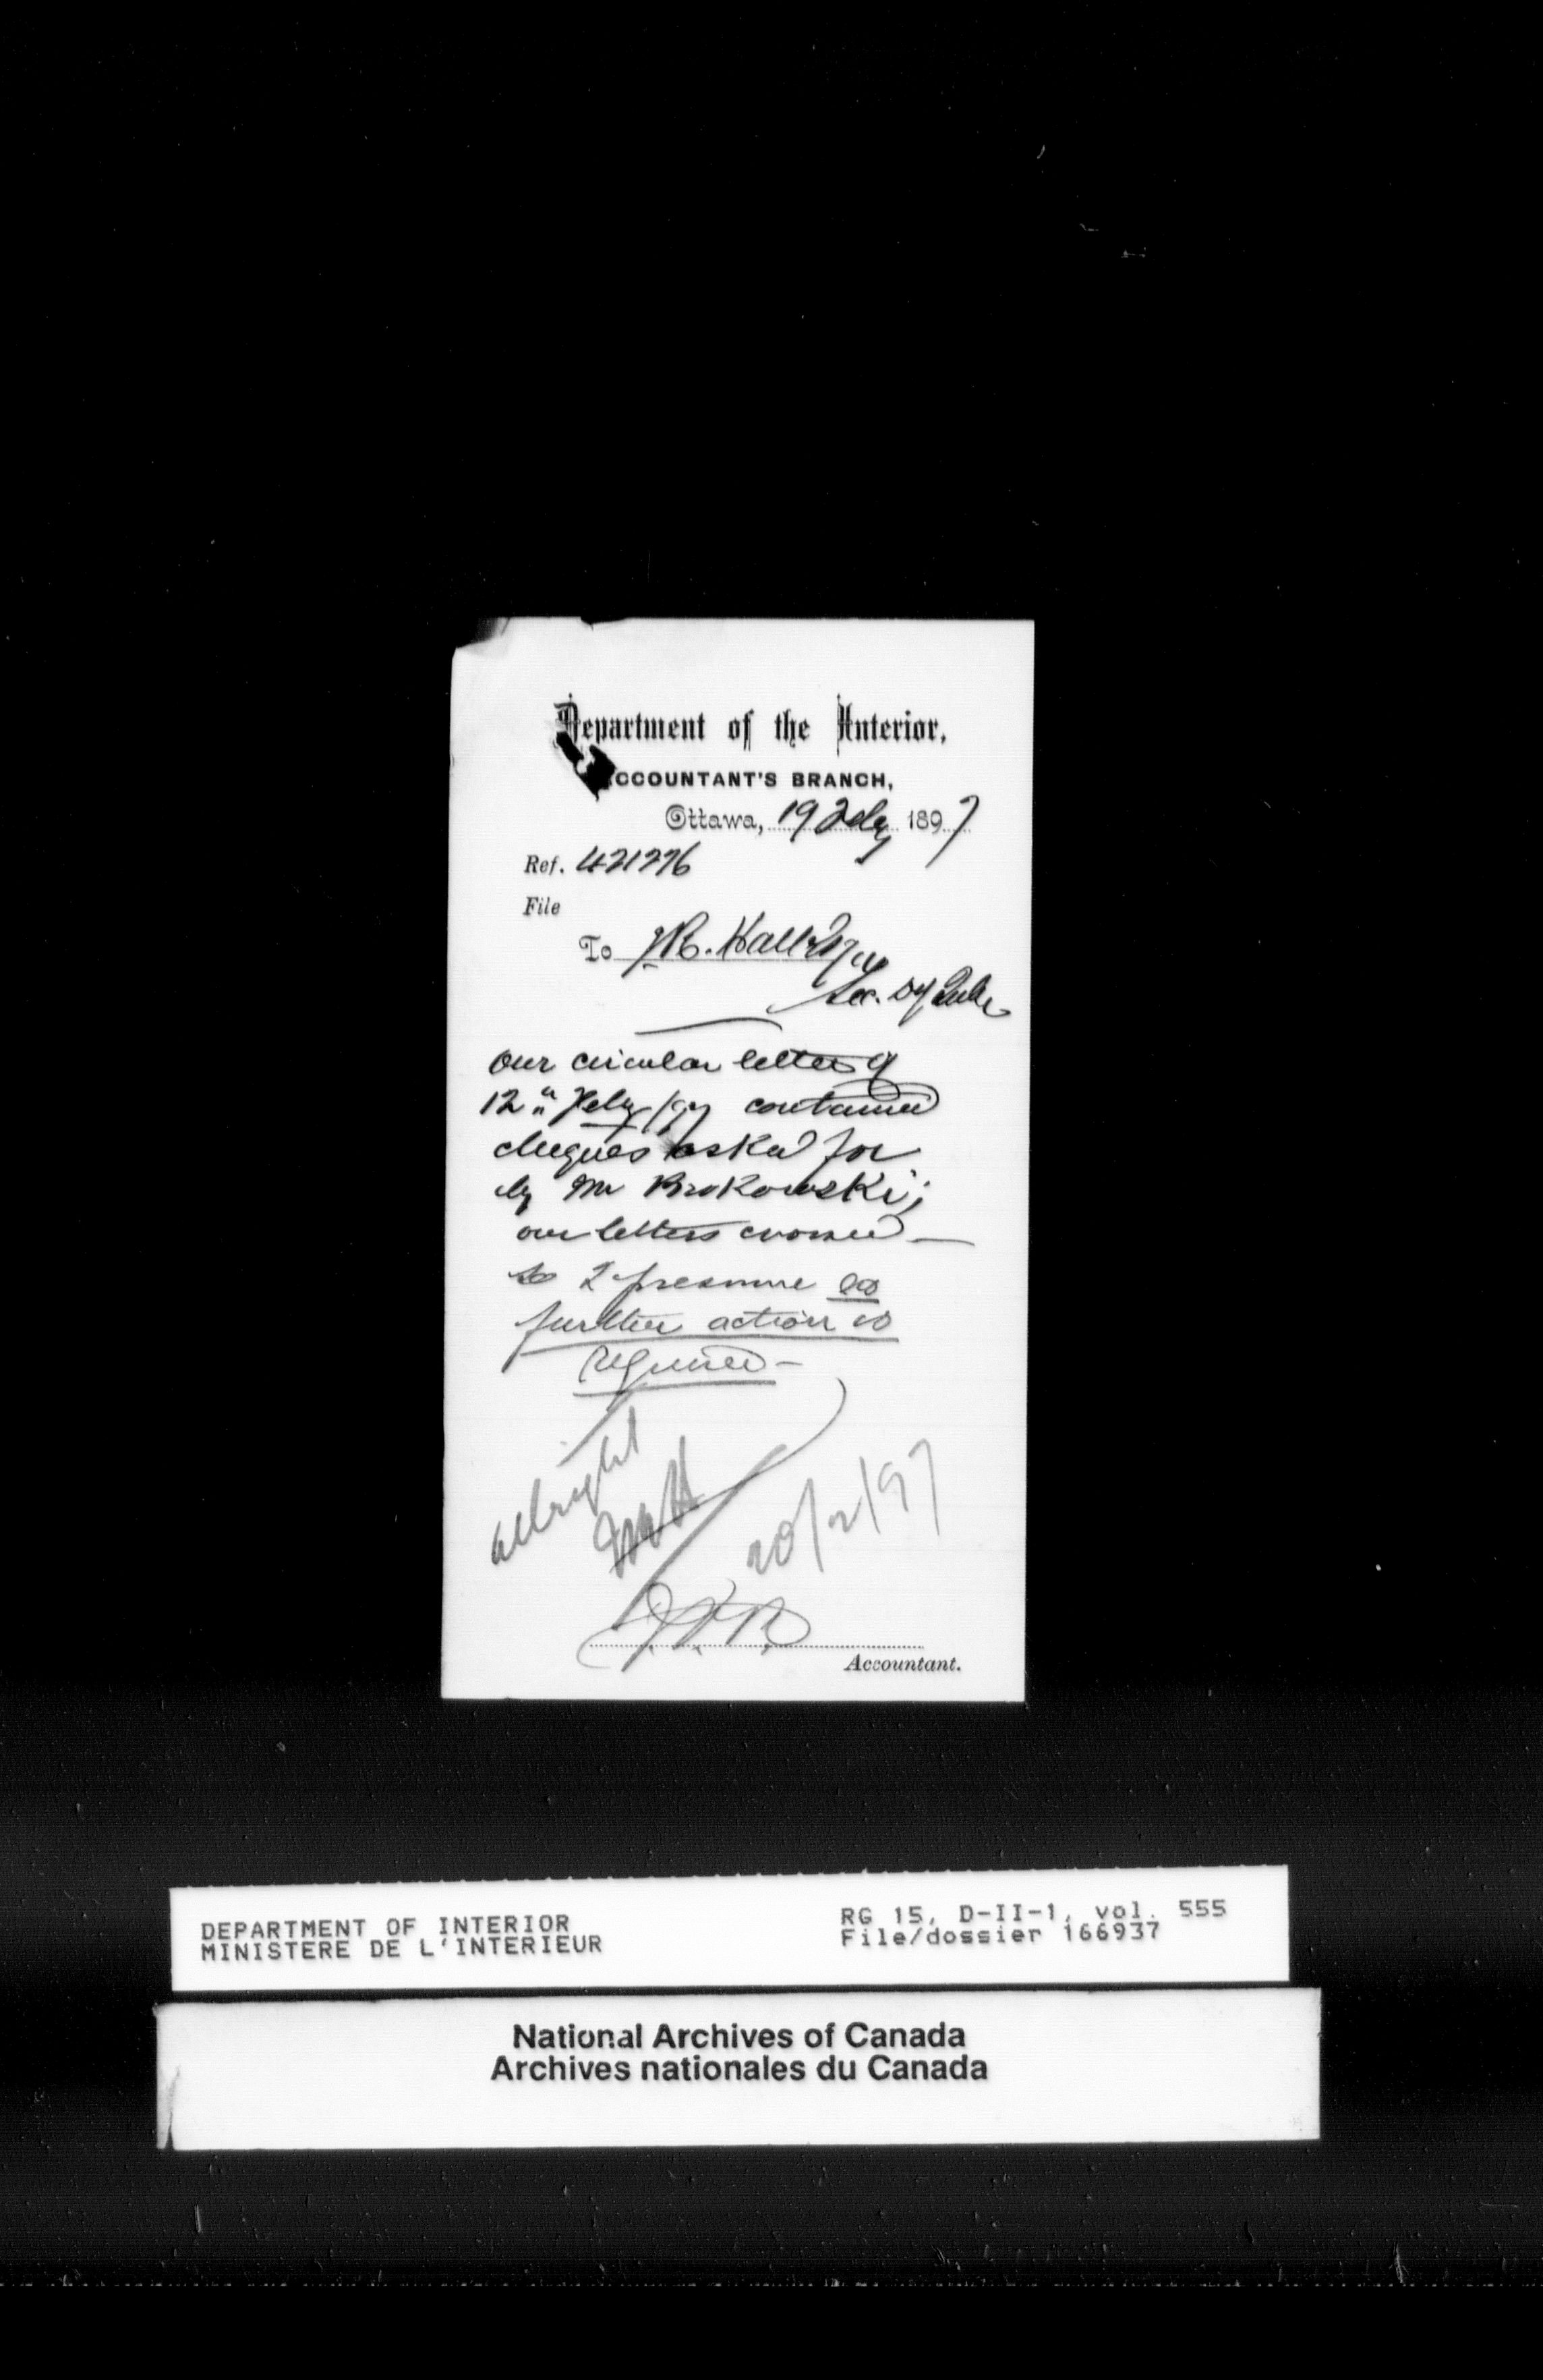 Department of the Interior,
ACCOUNTANT'S BRANCH,
Ottawa, 19 Feby 1897
Ref. 421276
File
To J.R. Hall Esq
Sec. Dept Int
Our circular letter of
12th Feby /97 contained
cheques asked for
by Mr Brokowski;
our letters crossed —
so I presume no
further action is
required —
allright
20/2/97
Accountant.
DEPARTMENT OF INTERIOR
MINISTERE DE L'INTERIEUR
RG 15, D-II-1, vol. 555
File/dossier 166937
National Archives of Canada
Archives nationales du Canada